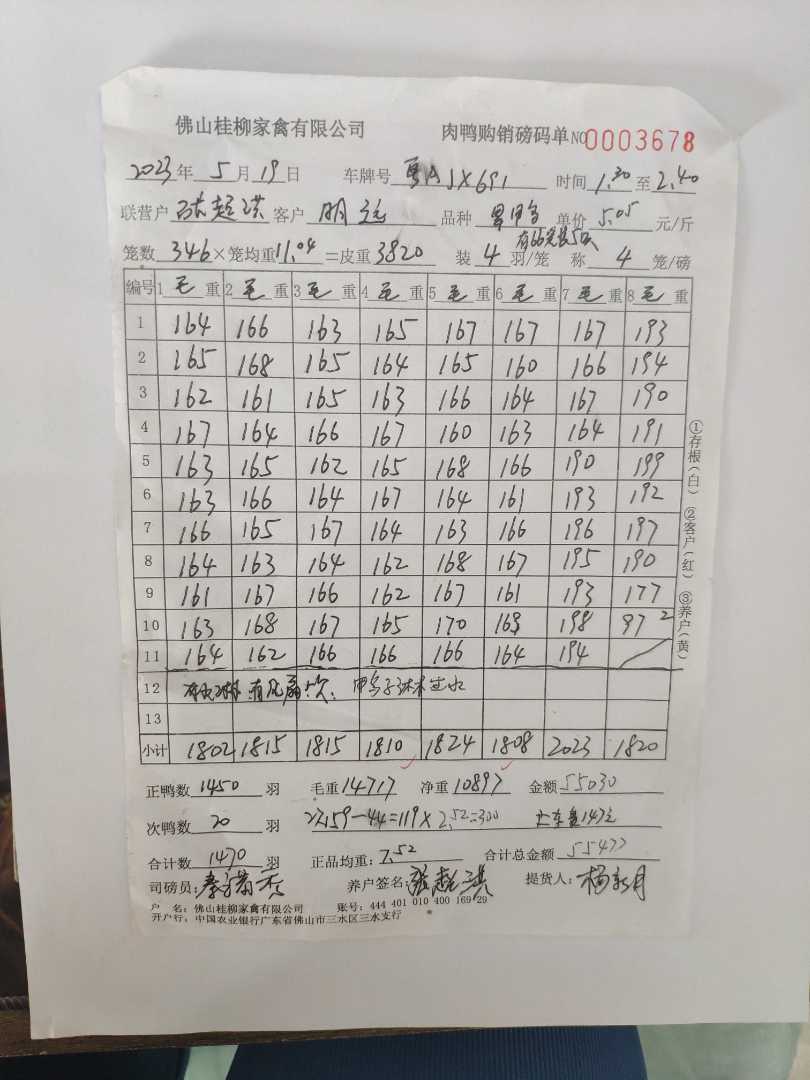 佛山桂柳家禽有限公司 肉鸭购销磅码单 NO 0003678
2023年 5月 19日 车牌号 粤AJX691 时间 1.30 至 2.40
联营户 张超洪 客户 明 品种 单价 5.05 元/斤
笼数 346 × 笼均重 11.04 = 皮重 3820 装 4 羽/笼 称 4 笼/磅
编号 1 毛 重 2 毛 重 3 毛 重 4 毛 重 5 毛 重 6 毛 重 7 毛 重 8 毛 重
1 164 166 163 165 167 167 167 193
2 165 168 165 164 165 160 166 194
3 162 161 165 163 166 164 167 190
4 167 164 166 167 160 163 164 191
5 163 165 162 165 168 166 190 199
6 163 166 164 167 164 161 193 192
7 166 165 167 164 163 166 196 197
8 164 163 164 162 168 167 195 190
9 161 167 166 162 167 161 193 177
10 163 168 167 165 170 168 198 97 2
11 164 162 166 166 166 164 194
12
13
小计 1802 1815 1815 1810 1824 1808 2023 1820
①存根(白) ②客户(红) ③养户(黄)
正鸭数 1450 羽 毛重 14717 净重 10897 金额 55030
次鸭数 20 羽 159-44=119×2.52=300 147元
合计数 1470 羽 正品均重: 7.52 合计总金额 55477
司磅员: 养户签名: 张超洪 提货人: 杨新月
户 名: 佛山桂柳家禽有限公司 账号: 444 401 010 400 169 29
开户行: 中国农业银行广东省佛山市三水区三水支行